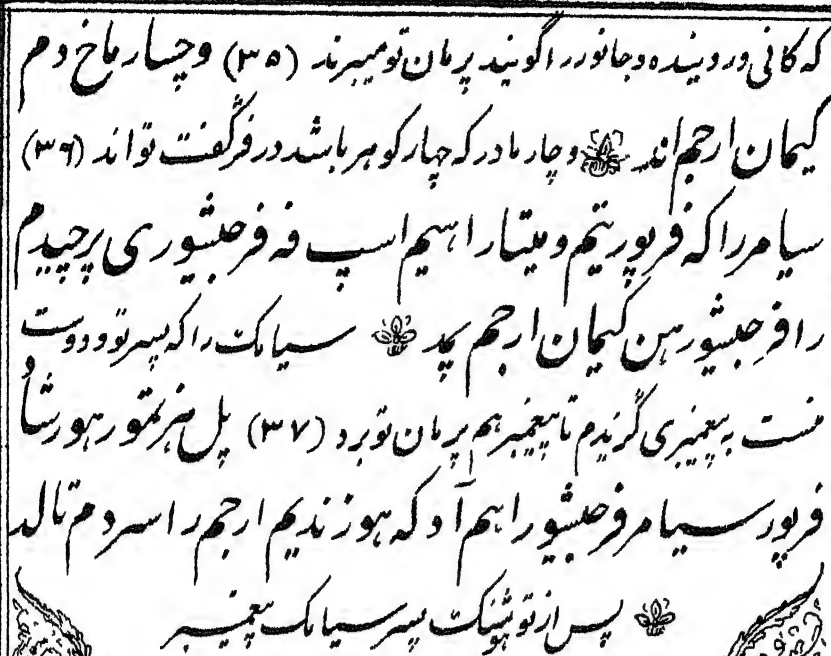 که کانی و روینده و جانور را گویند پرمان تو میبرند (۳۵) و چسار ماخ دم
گیمان ارجم اند و چار مادر که چهار گوهر باشد در فرگفت تو اند (۳۶)
سیامر را که فرپور یتم و میتار اهیم اسپ فه فرجیشوری پرچیدم
را فرجیشور هن گیمان ارجم پد سیامک را که پسر تو و دوست
منست به پیغمبری گزیدم تا پیغمبر هم پرمان تو برد (۳۷) پل هورشا
فرپور سیامر فرجیشور اهم آد که هوز ندیم ارجم را سردم تالد
پس از تو هوشنک پسر سیامک پیغمبر